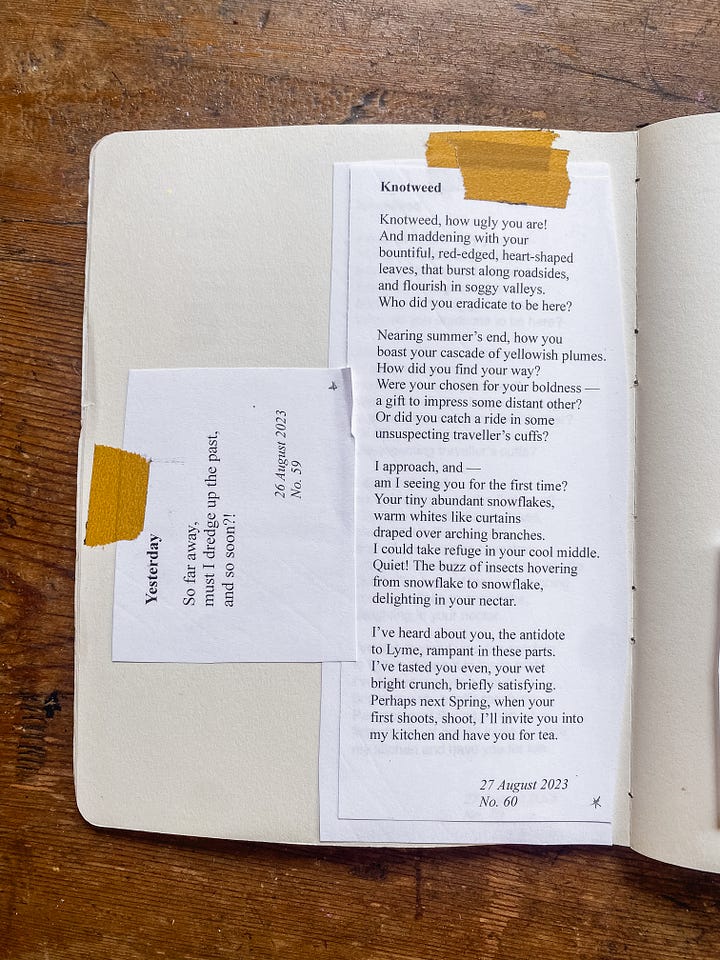 Yesterday
So far away,
must I dredge up the past,
and so soon?!
26 August 2023
No. 59
Knotweed
Knotweed, how ugly you are!
And maddening with your
bountiful, red-edged, heart-shaped
leaves, that burst along roadsides,
and flourish in soggy valleys.
Who did you eradicate to be here?
Nearing summer’s end, how you
boast your cascade of yellowish plumes.
How did you find your way?
Were your chosen for your boldness —
a gift to impress some distant other?
Or did you catch a ride in some
unsuspecting traveller’s cuffs?
I approach, and —
am I seeing you for the first time?
Your tiny abundant snowflakes,
warm whites like curtains
draped over arching branches.
I could take refuge in your cool middle.
Quiet! The buzz of insects hovering
from snowflake to snowflake,
delighting in your nectar.
I’ve heard about you, the antidote
to Lyme, rampant in these parts.
I’ve tasted you even, your wet
bright crunch, briefly satisfying.
Perhaps next Spring, when your
first shoots, shoot, I’ll invite you into
my kitchen and have you for tea.
27 August 2023
No. 60